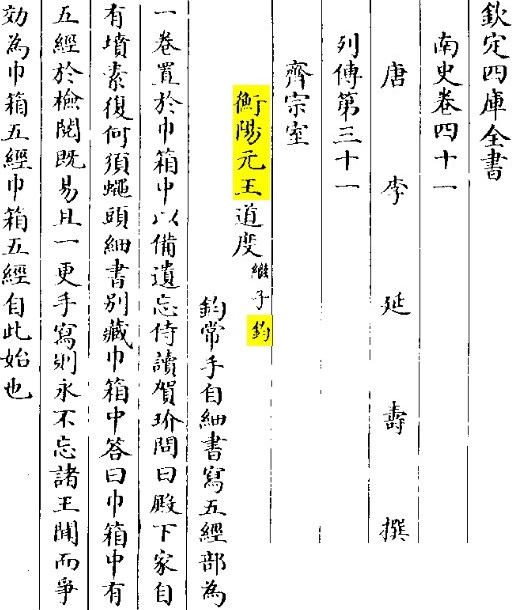 欽定四庫全書
南史卷四十一
唐 李 延 壽 撰
列傳第三十一
齊宗室
衡陽元王道度 繼子鈞
鈞常手自細書寫五經部為
一卷置於巾箱中以備遺忘侍讀賀玠問曰殿下家自
有墳素復何須蠅頭細書別藏巾箱中答曰巾箱中有
五經於檢閱既易且一更手寫則永不忘諸王聞而爭
効為巾箱五經巾箱五經自此始也